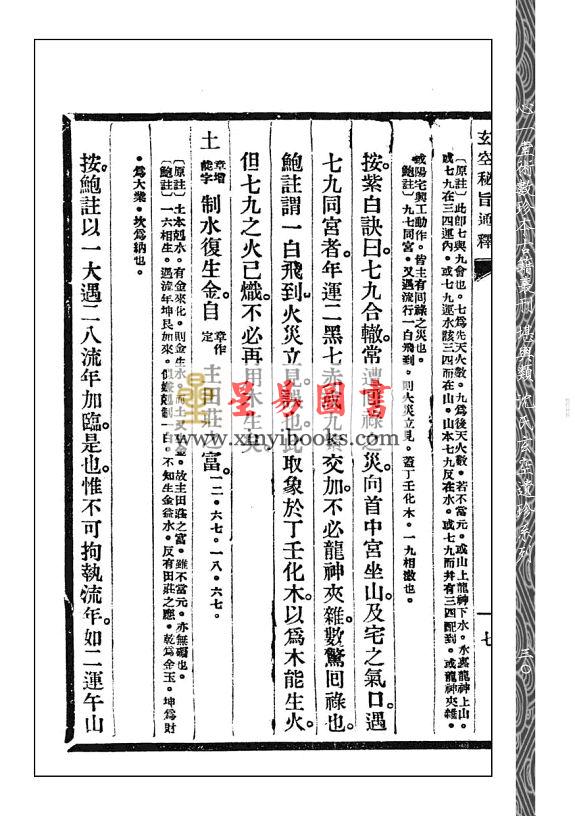 心一堂術數珍本古籍叢刊 堪輿類 沈氏玄空遺珍系列 三〇
玄空秘旨通釋 一七
〔原註〕此卽七與九會也。七爲先天火數。九爲後天火數。若不當元。或山上龍神下水。水裏龍神上山。
或七九在三四運內。或七九運水該三四而在山。山本七九反在水。或七九而幷有三四配到。或龍神夾雜。
或陽宅興工動作。皆主有囘祿之災也。
〔鮑註〕九七同宮。又遇流行一白飛到。則火災立見。蓋丁壬化木。一九相激也。
按紫白訣曰七九合轍常遭囘祿之災向首中宮坐山及宅之氣口遇
七九同宮者年運二黑七赤或九紫交加不必龍神夾雜數驚囘祿也
鮑註謂一白飛到火災立見 取象於丁壬化木以爲木能生火
但七九之火已熾不必再用木生矣
土 章增能字 制水復生金自 章作定 主田莊之富 一二。六七。一八。六七。
〔原註〕土本剋水。有金來化。則金生水。而土又 金。故主田莊之富。雖不當元。亦無礙也。
〔鮑註〕一六相生。遇流年坤艮加來。似嫌剋制一白。不知生金益水。反有田莊之應。乾爲金玉。坤爲財
。爲大業。坎爲納也。
按鮑註以一六遇二八流年加臨是也惟不可拘執流年如二運午山
星易圖書
www.xinyibooks.com